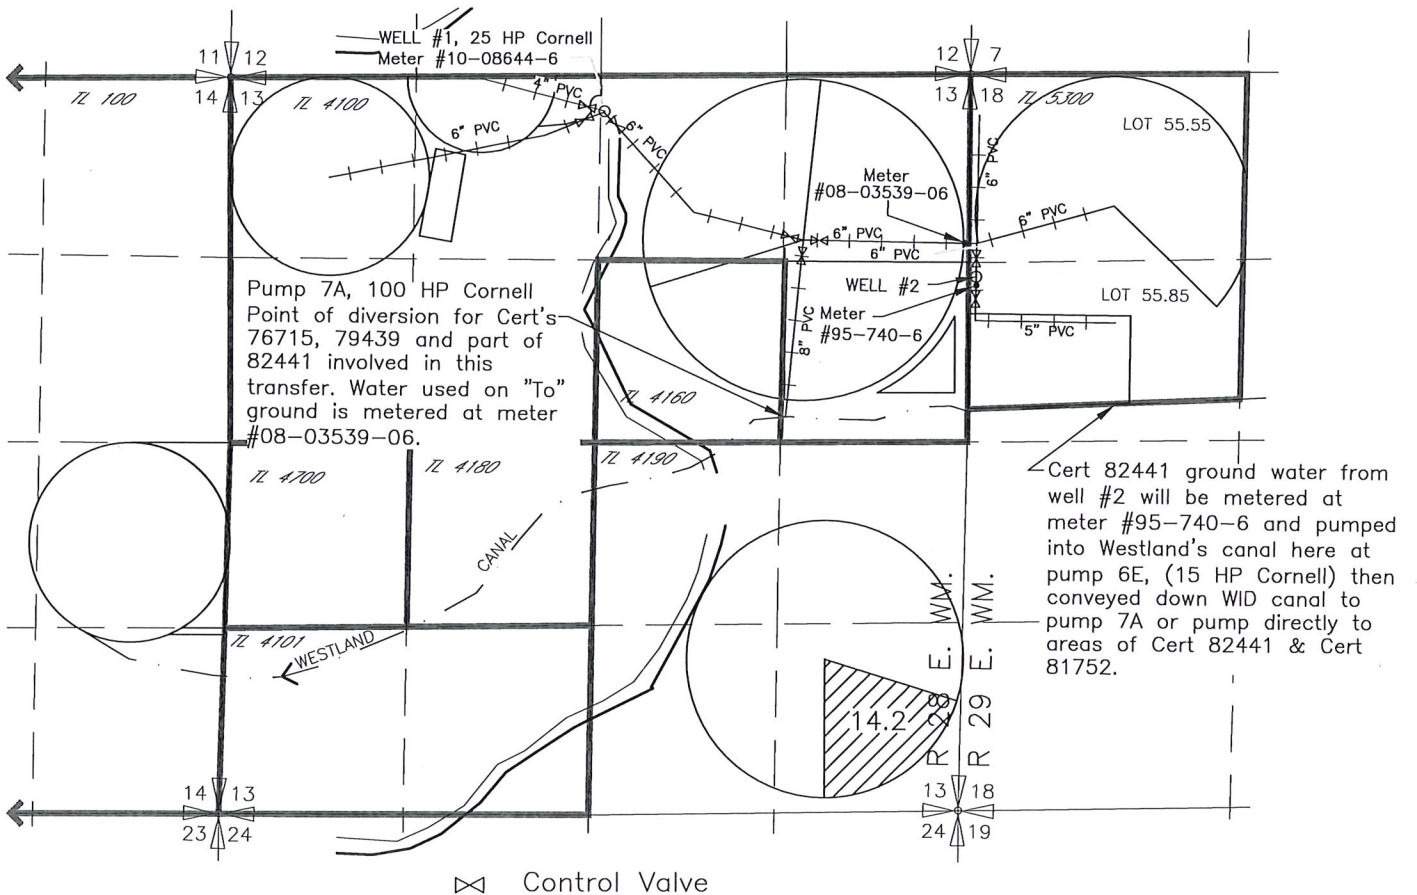 WELL #1, 25 HP Cornell
Meter #10-08644-6
11 12
14 13
12 7
13 18
TL 100
TL 4100
4" PVC
6" PVC
6" PVC
TL 5300
LOT 55.55
Meter
#08-03539-06
6" PVC
6" PVC
6" PVC
6" PVC
WELL #2
Meter
#95-740-6
8" PVC
5" PVC
LOT 55.85
Pump 7A, 100 HP Cornell
Point of diversion for Cert's
76715, 79439 and part of
82441 involved in this
transfer. Water used on "To"
ground is metered at meter
#08-03539-06.
TL 4160
TL 4190
TL 4180
TL 4700
CANAL
TL 4101
WESTLAND
Cert 82441 ground water from
well #2 will be metered at
meter #95-740-6 and pumped
into Westland's canal here at
pump 6E, (15 HP Cornell) then
conveyed down WID canal to
pump 7A or pump directly to
areas of Cert 82441 & Cert
81752.
14.2
R 28 E. WM.
R 29 E. WM.
14 13
23 24
13 18
24 19
Control Valve